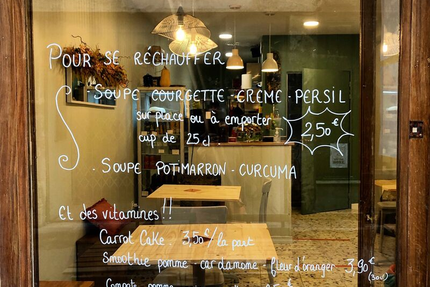 Pour se réchauffer
Soupe courgette crème persil
sur place ou à emporter
cup de 25cl
2,50€
. Soupe potimarron - curcuma
Et des vitamines !!
Carrot Cake : 3,50€/la part
Smoothie pomme - cardamome - fleur d'oranger 3,90€
Compote pomme